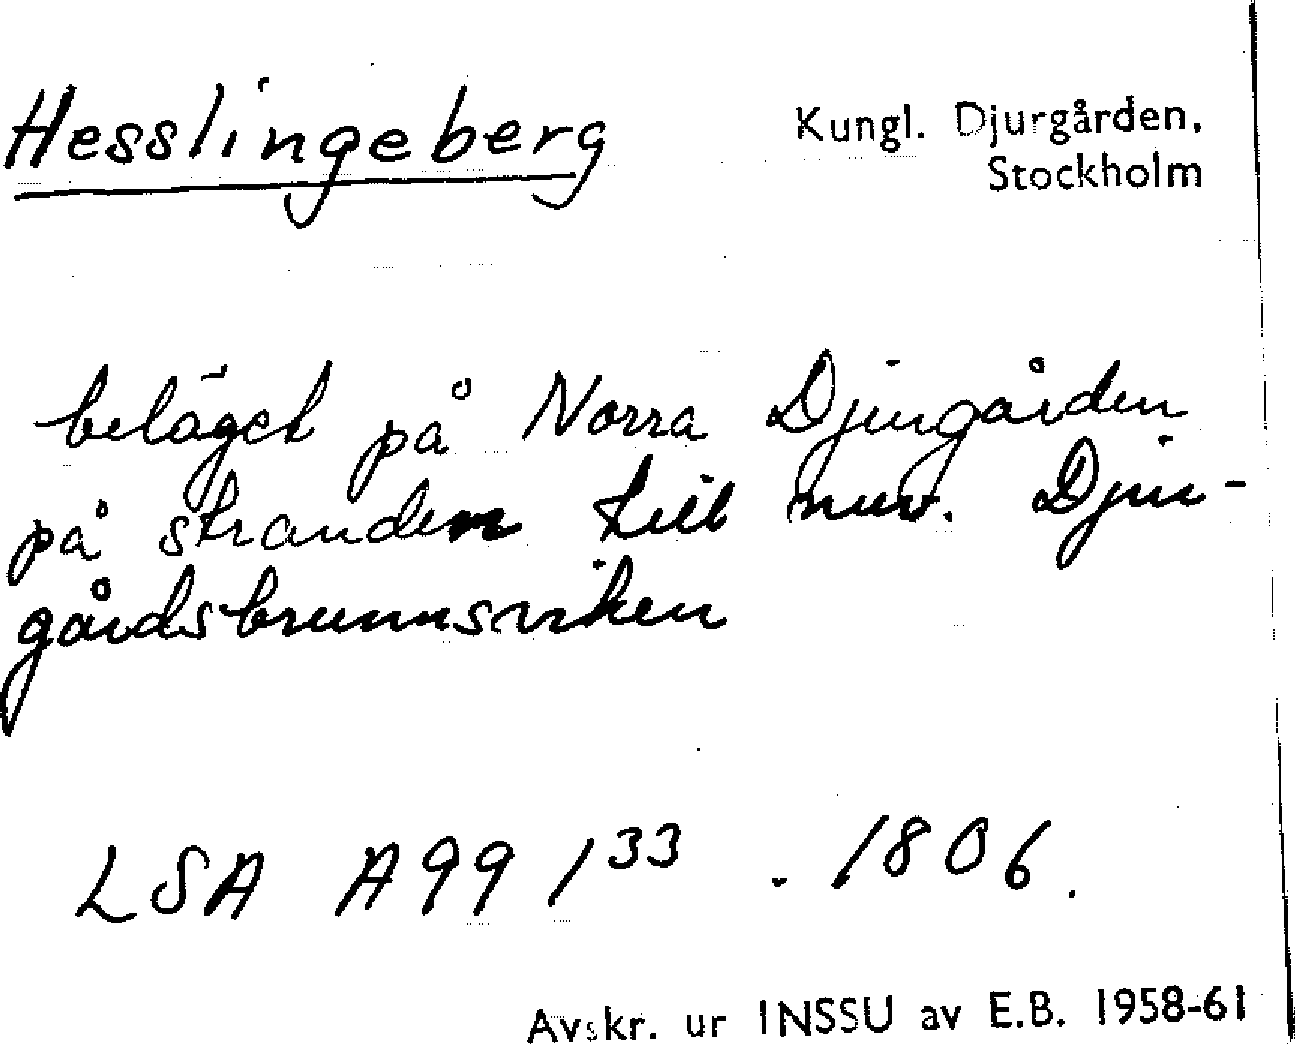 Hesslingeberg
Kungl. Djurgården,
Stockholm
beläget på Norra Djurgården
på stranden till nuv. Djur-
gårdsbrunnsviken
LSA A99 1³³ . 1806.
Avskr. ur INSSU av E.B. 1958-61